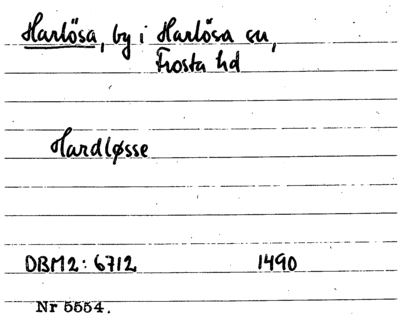 Harlösa, by i Harlösa sn,
Frosta hd
Hardløsse
DBM2: 6712 1490
Nr 5554.